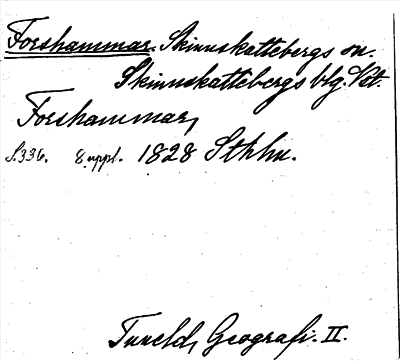 Forshammar. Skinnskattebergs sn.
Skinnskattebergs blg. Vst.
Forshammar,
S.336. 8 uppl. 1828 Sthlm.
Tuneld, Geografi. II.